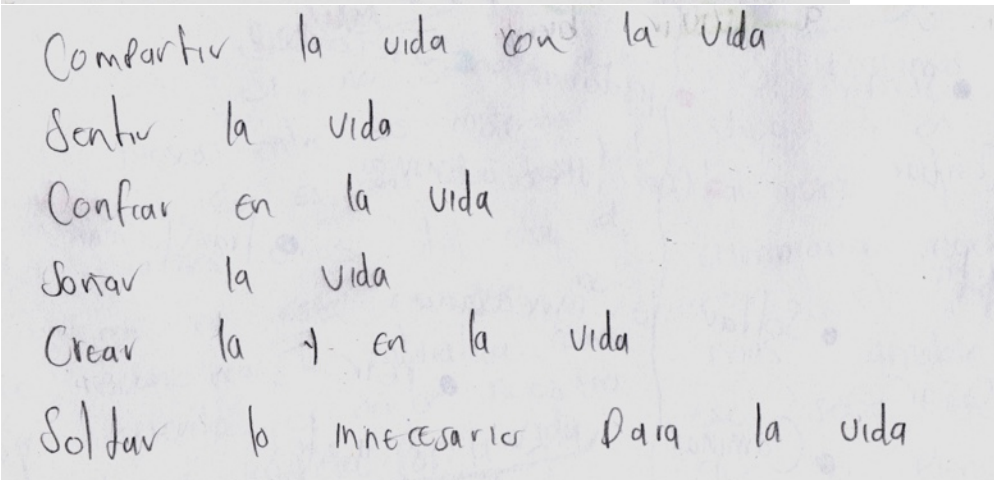 Compartir la vida con la vida
Sentir la vida
Confiar en la vida
Soñar la vida
Crear la y en la vida
Soltar lo innecesario para la vida